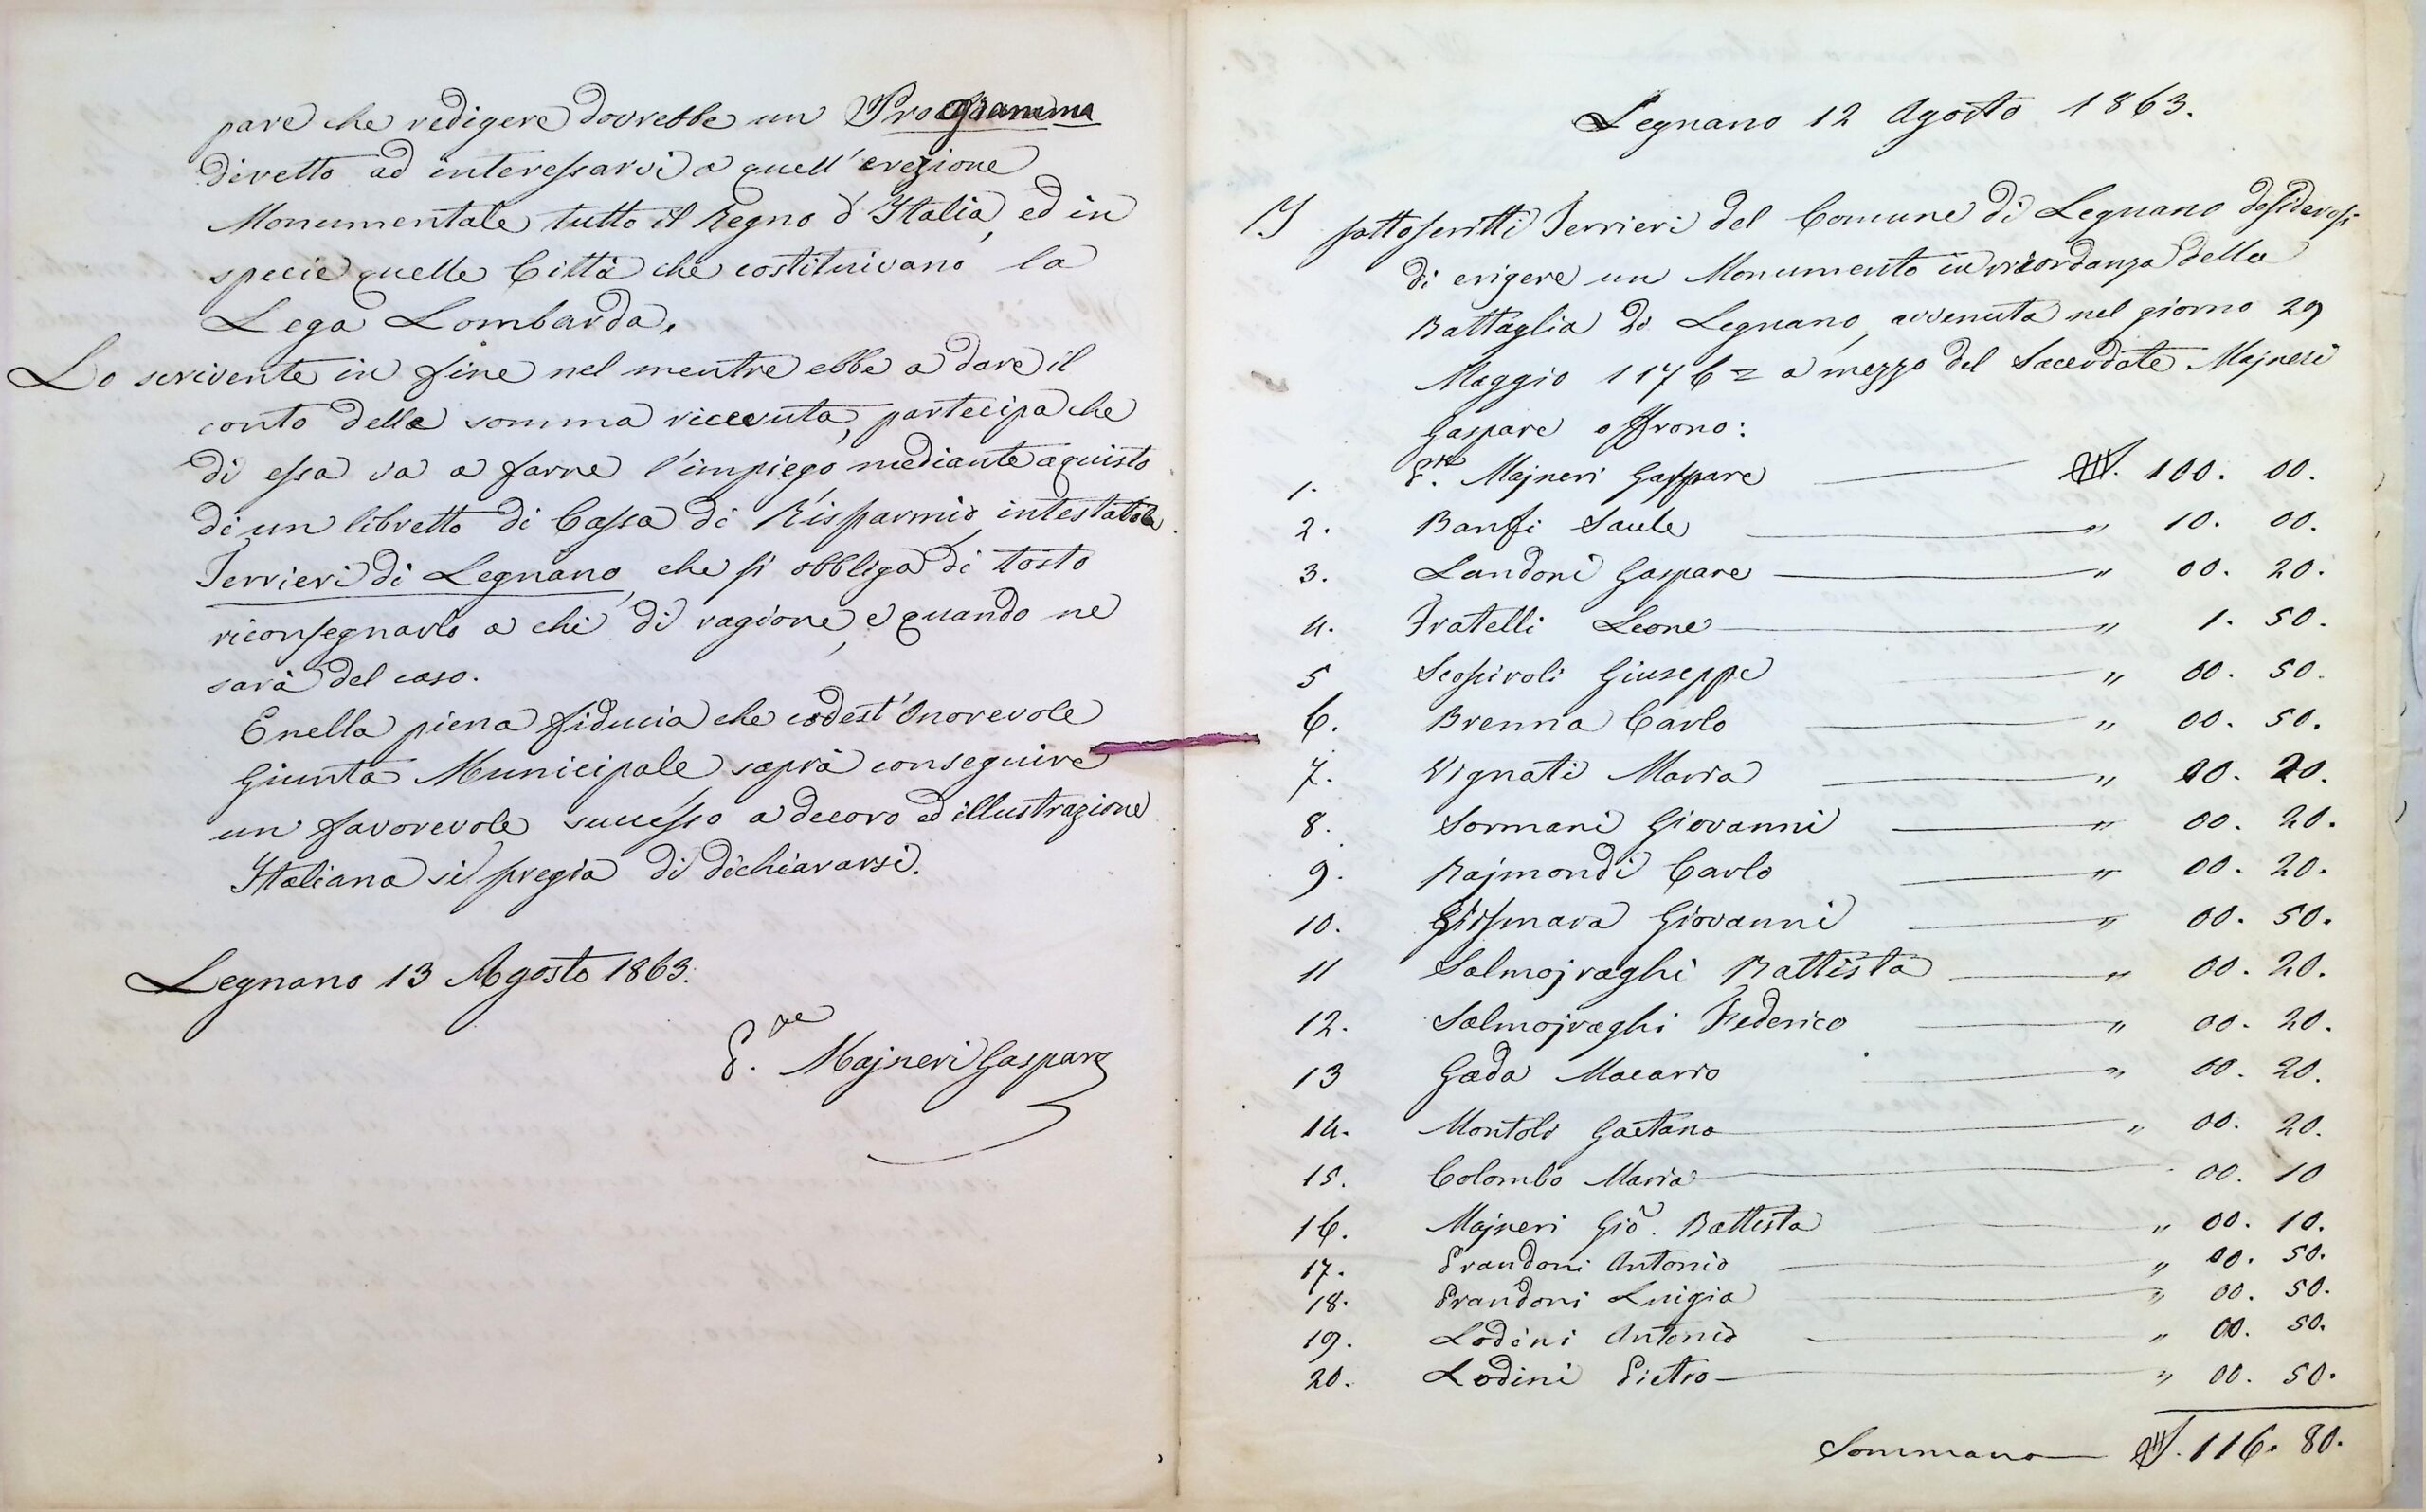 pare che redigere dovrebbe un Programma
diretto ad interessarvi a quell'erezione
Monumentale tutto il Regno d'Italia, ed in
specie quelle Città che costituivano la
Lega Lombarda.
Lo scrivente in fine nel mentre ebbe a dare il
conto della somma ricevuta, partecipa che
di essa va a farne l'impiego mediante aquisto
di un libretto di Cassa di Risparmio, intestato
Terrieri di Legnano, che si obbliga di tosto
riconsegnarlo a chi di ragione, e quando ne
sarà del caso.
E nella piena fiducia che codest'Onorevole
Giunta Municipale saprà conseguire
un favorevole successo a decoro ed illustrazione
Italiana si pregia di dichiararsi.
Legnano 13 Agosto 1863.
P.re Majneri Gaspare
Legnano 12 Agosto 1863.
I sottoscritti Terrieri del Comune di Legnano desiderosi
di erigere un Monumento in ricordanza della
Battaglia di Legnano, avvenuta nel giorno 29
Maggio 1176 = a mezzo del Sacerdote Majneri
Gaspare offrono:
1. P.re Majneri Gaspare 100. 00.
2. Banfi Saule " 10. 00.
3. Landoni Gaspare " 00. 20.
4. Fratelli Leone " 1. 50.
5 Scosiroli Giuseppe " 00. 50.
6. Brenna Carlo " 00. 50.
7. Vignati Maria " 00. 20.
8. Sormani Giovanni " 00. 20.
9. Rajmondi Carlo " 00. 20.
10. Giovanni " 00. 50.
11 Salmojraghi Battista " 00. 20.
12. Salmojraghi Federico " 00. 20.
13 Gada Macario " 00. 20.
14. Montoli Gaetano " 00. 20.
15. Colombo Maria 00. 10
16. Majneri Gio. Battista " 00. 10.
17. Prandoni Antonio " 00. 50.
18. Prandoni Luigia " 00. 50.
19. Lodini Antonio " 00. 50.
20. Lodini Pietro " 00. 50.
Sommano 116. 80.